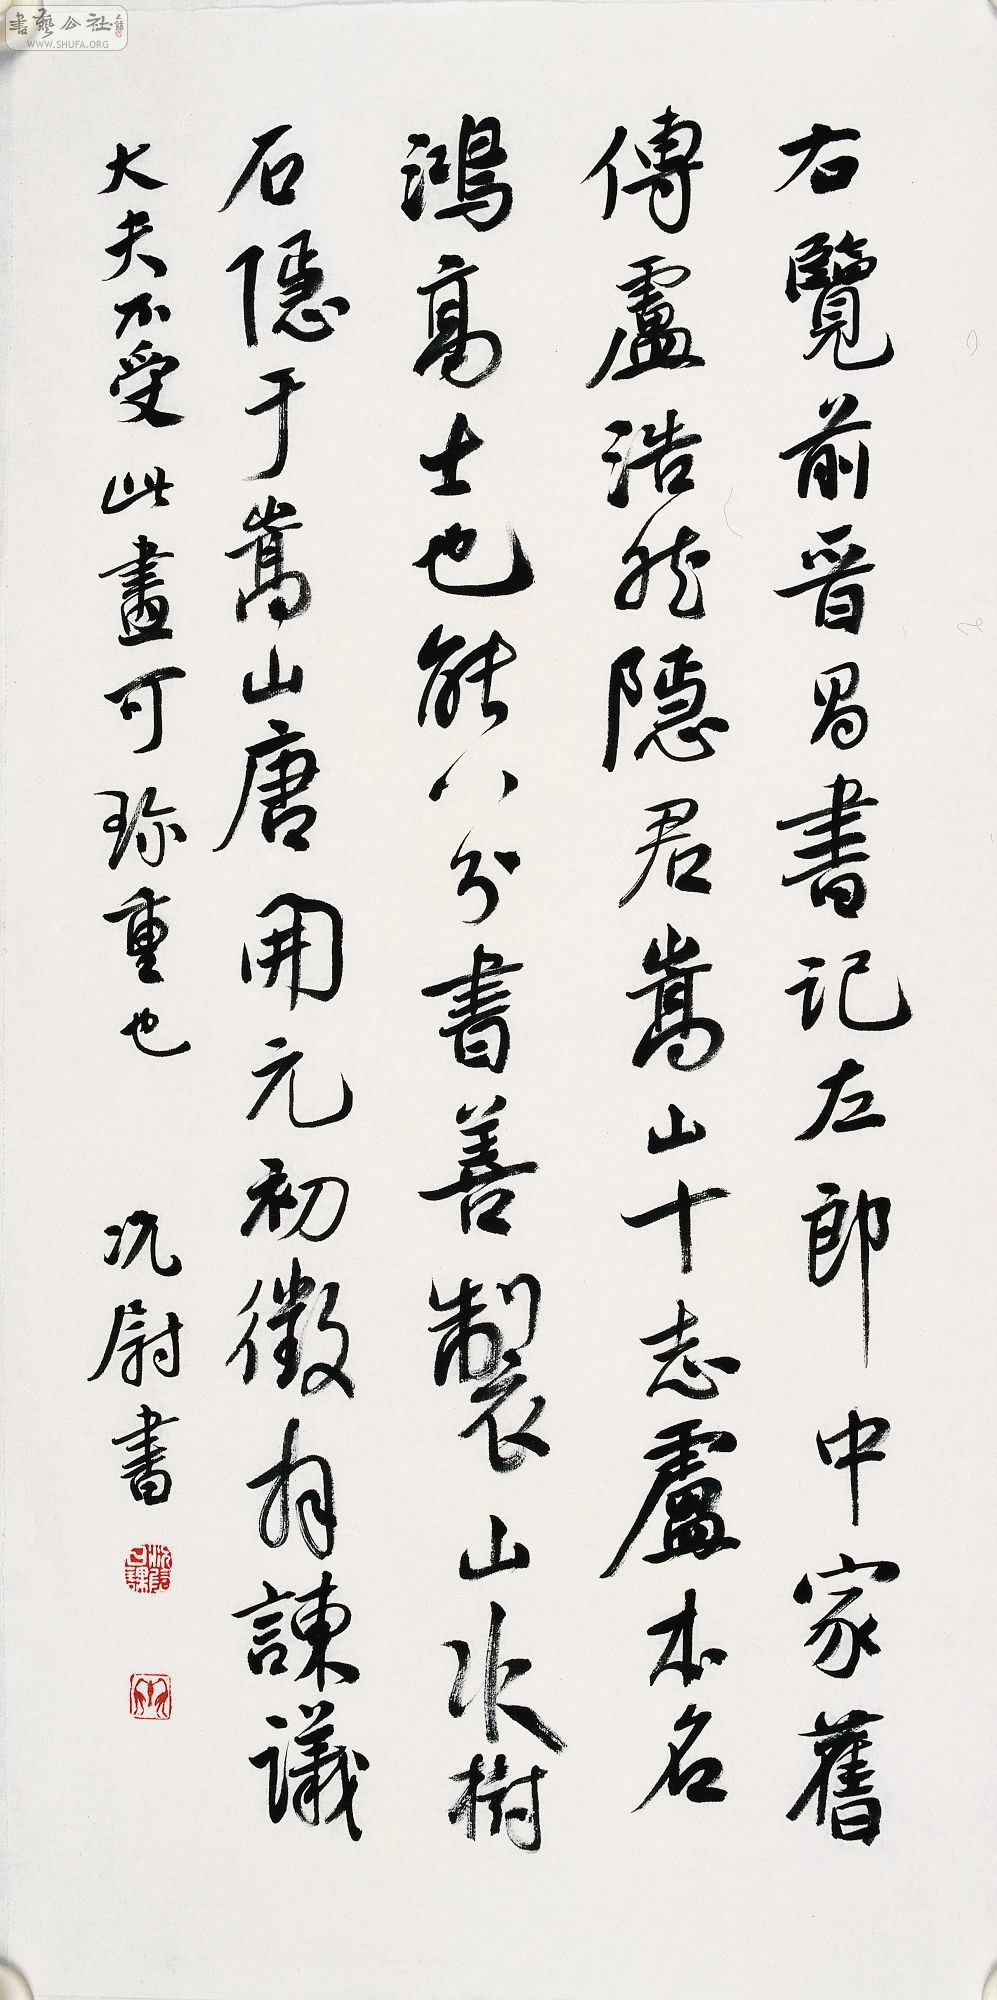 右覽前晉昌書記左郎中家舊
傳盧浩然隱君嵩山十志盧本名
鴻高士也能八分書善製山水樹
石隱于嵩山唐開元初徵拜諫議
大夫不受此畫可珎重也
沈尉書
書藝公社
WWW.SHUFA.ORG